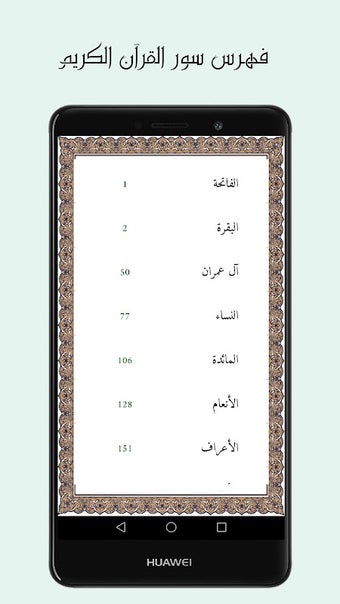 فهرس سور القرآن الكريم
الفاتحة 1
البقرة 2
آل عمران 50
النساء 77
المائدة 106
الأنعام 128
الأعراف 151
HUAWEI